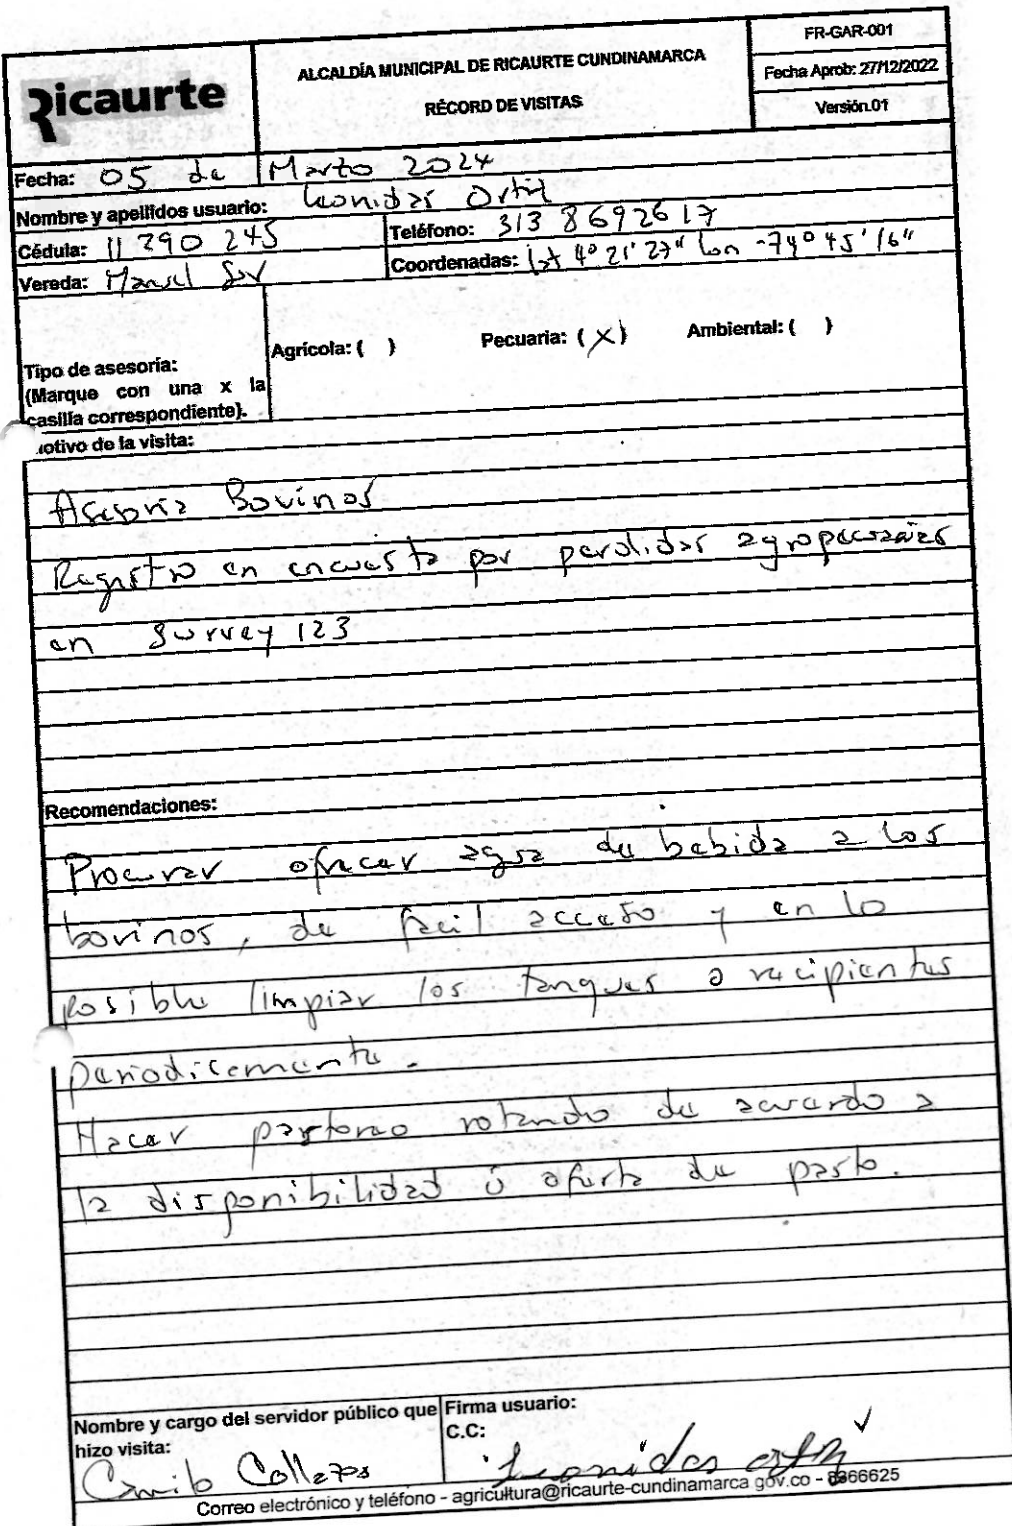 Ricaurte
ALCALDÍA MUNICIPAL DE RICAURTE CUNDINAMARCA
RÉCORD DE VISITAS
FR-GAR-001
Fecha Aprob: 27/12/2022
Versión.01
Fecha: 05 de Marzo 2024
Nombre y apellidos usuario: Leonidas Ortiz
Cédula: 11 290 245 Teléfono: 313 8692617
Vereda: Manuel Sur Coordenadas: lat 4° 21' 27" lon -74° 45' 16"
Tipo de asesoría:
(Marque con una x la
casilla correspondiente).
Agrícola: ( ) Pecuaria: (X) Ambiental: ( )
otivo de la visita:
Asesoria Bovinos
Registro en encuesta por perdidas agropecuarias
en Survey 123
Recomendaciones:
Procurar ofrecer agua de bebida a los
bovinos, de facil acceso y en lo
posible limpiar los tanques o recipientes
periodicamente.
Hacer pastoreo rotando de acuerdo a
la disponibilidad ú oferta de pasto.
Nombre y cargo del servidor público que
hizo visita:
Camilo Collazos
Firma usuario:
C.C:
Leonidas Ortiz
Correo electrónico y teléfono - agricultura@ricaurte-cundinamarca.gov.co - 8366625